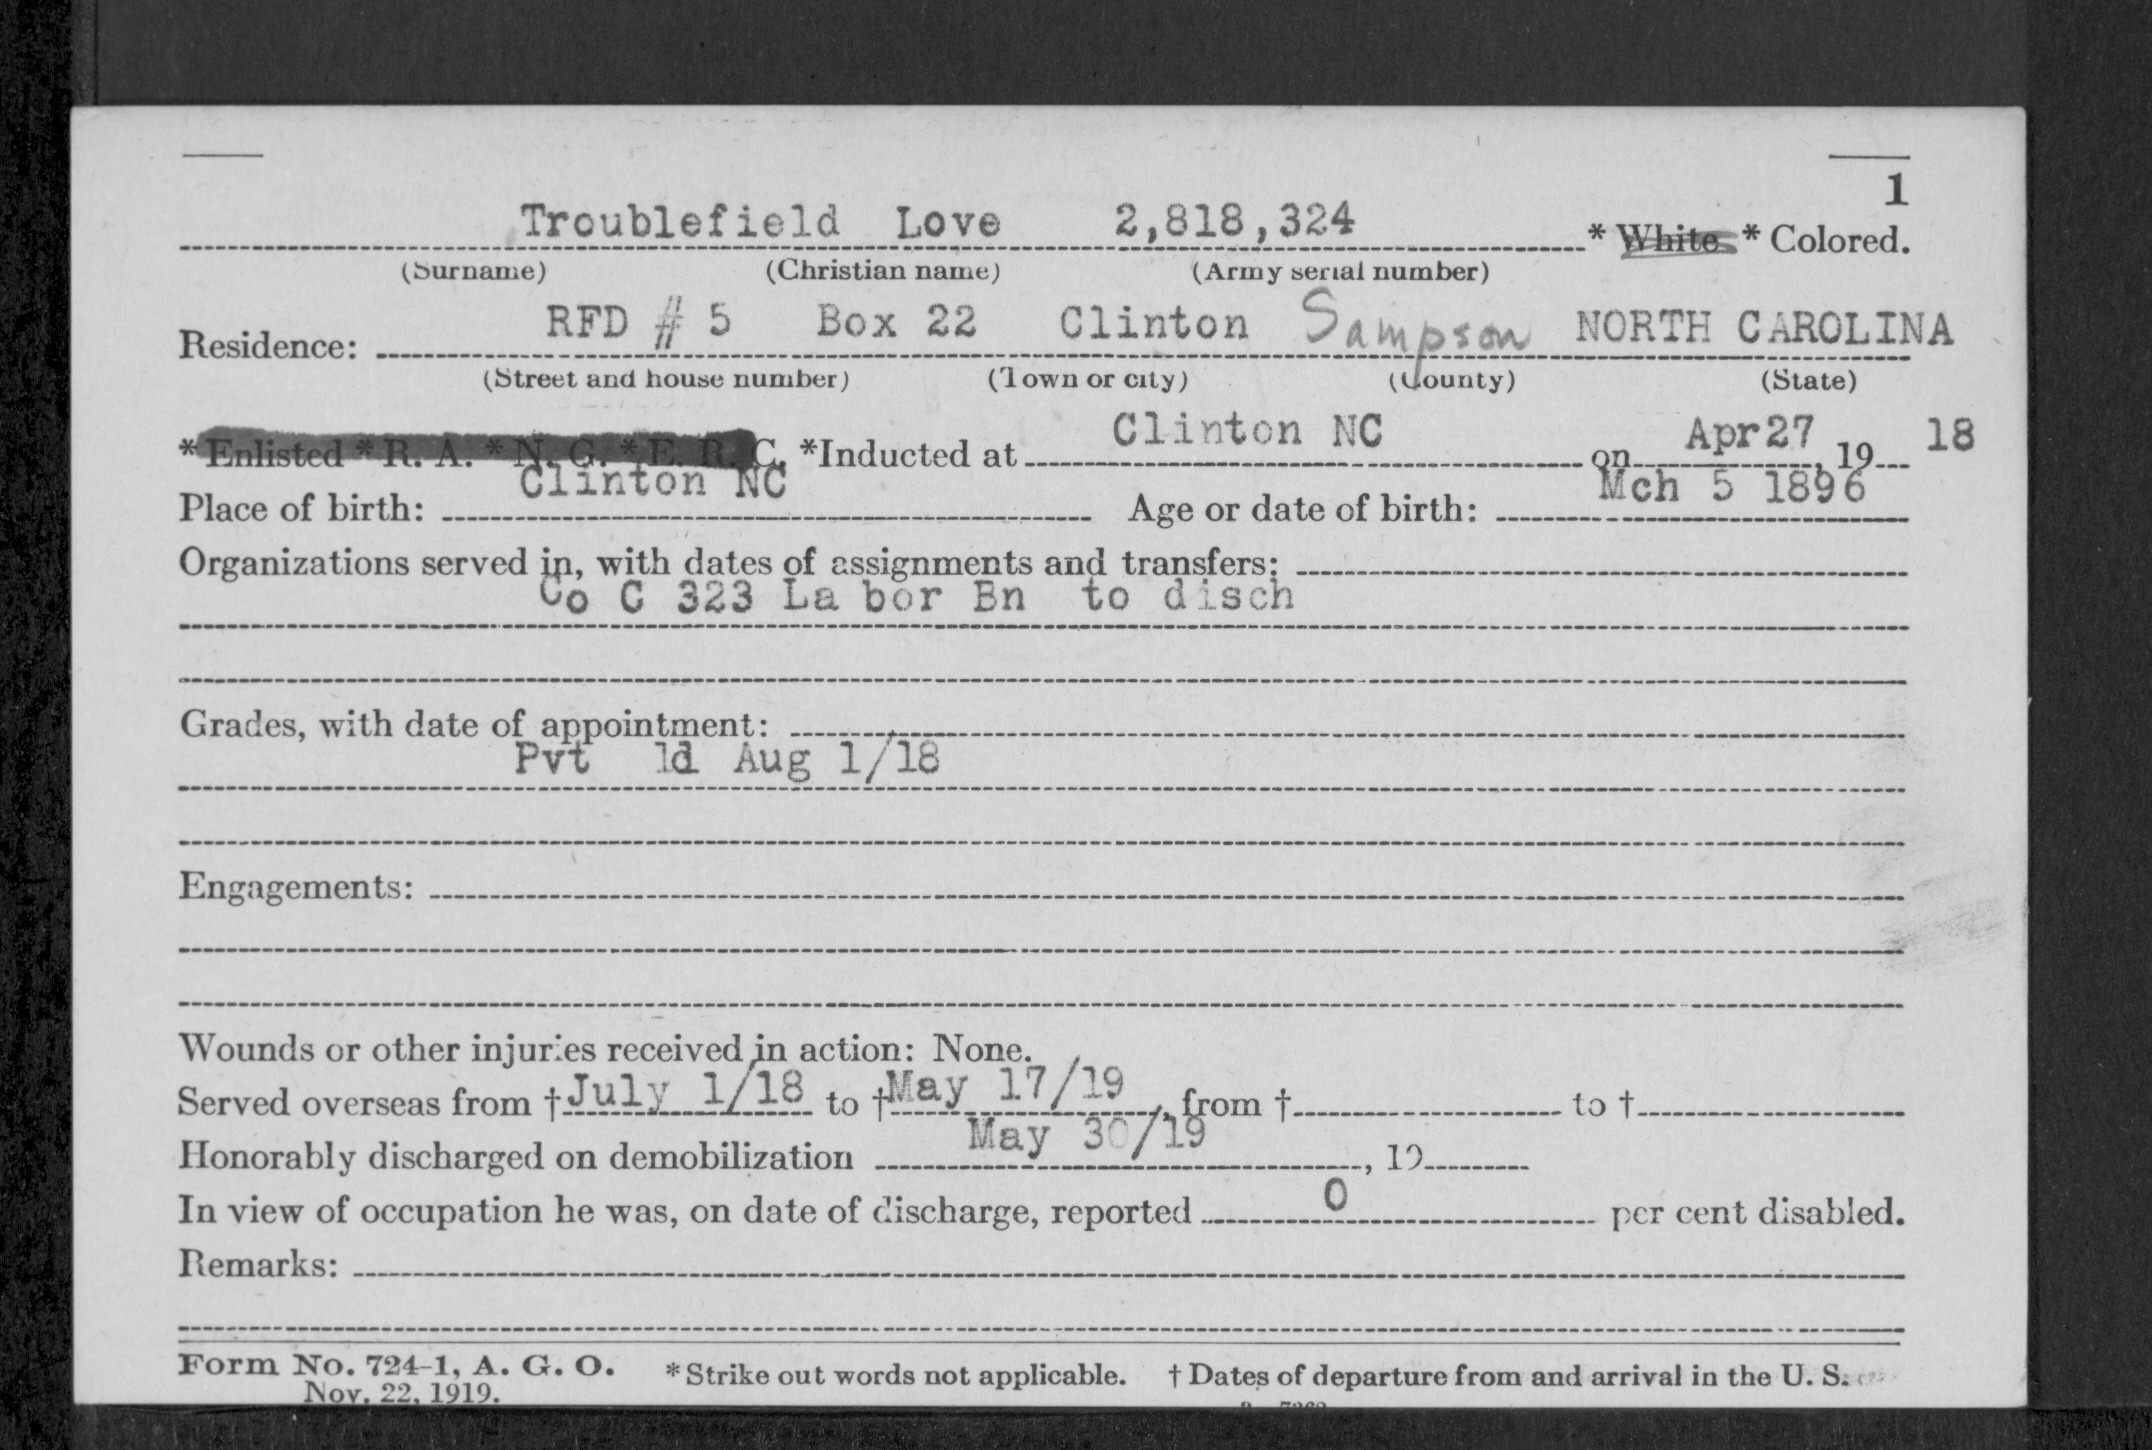 1
Troublefield Love 2,818,324 * White * Colored.
(Surname) (Christian name) (Army serial number)
Residence: RFD # 5 Box 22 Clinton Sampson NORTH CAROLINA
(Street and house number) (Town or city) (County) (State)
* Enlisted * R. A. * N. G. * E. R. C. *Inducted at Clinton NC on Apr 27, 19 18
Place of birth: Clinton NC Age or date of birth: Mch 5 1896
Organizations served in, with dates of assignments and transfers:
Co C 323 La bor Bn to disch
Grades, with date of appointment:
Pvt 1d Aug 1/18
Engagements:
Wounds or other injuries received in action: None.
Served overseas from † July 1/18 to † May 17/19, from † to †
Honorably discharged on demobilization May 30/19, 19
In view of occupation he was, on date of discharge, reported 0 per cent disabled.
Remarks:
Form No. 724-1, A. G. O. * Strike out words not applicable. † Dates of departure from and arrival in the U. S.
Nov. 22, 1919.